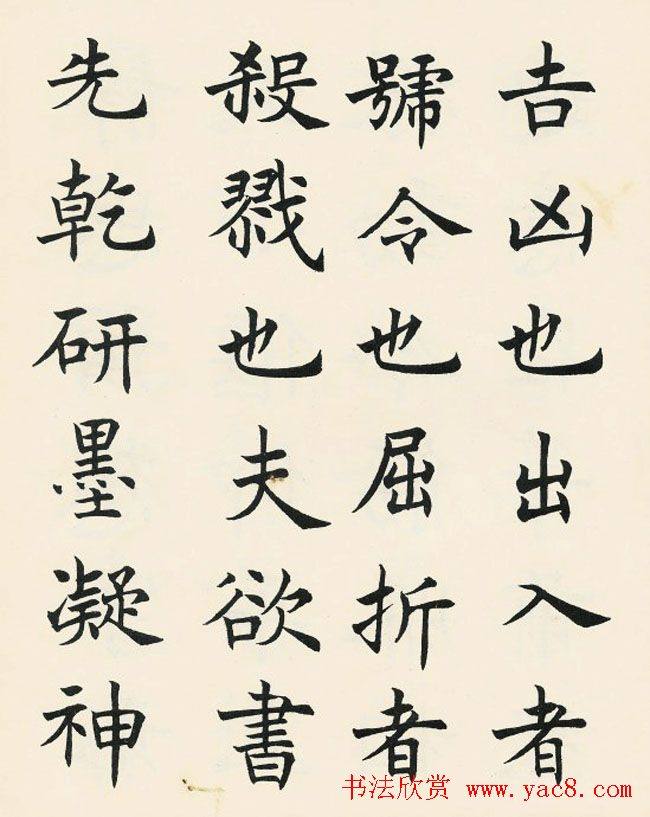 吉凶也出入者
號令也屈折者
殺戮也夫欲書
先乾研墨凝神
书法欣赏 www.yac8.com